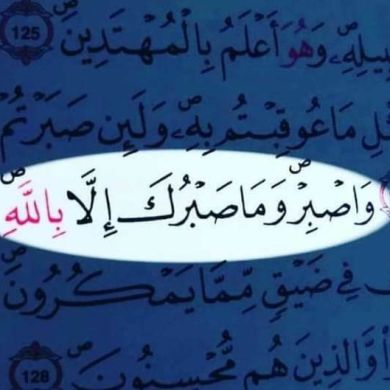 بِيلِهِۦ وَهُوَ أَعْلَمُ بِالْمُهْتَدِينَ 125
ـلِ مَا عُوقِبْتُم بِهِۦ وَلَئِن صَبَرْتُمْ
وَاصْبِرْ وَمَا صَبْرُكَ إِلَّا بِاللَّهِ
فِي ضَيْقٍ مِّمَّا يَمْكُرُونَ
وَّالَّذِينَ هُم مُّحْسِنُونَ 128